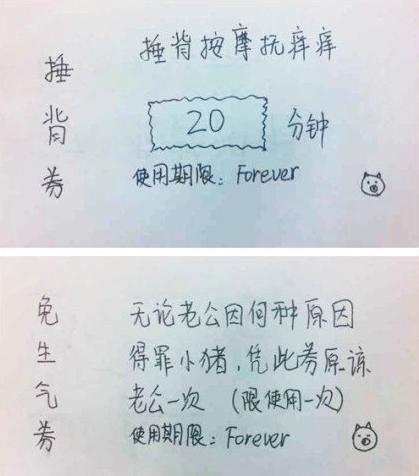 捶背券
捶背按摩抚痒痒
20 分钟
使用期限：Forever
免生气券
无论老公因何种原因
得罪小猪，凭此券原谅
老公一次 （限使用一次）
使用期限：Forever